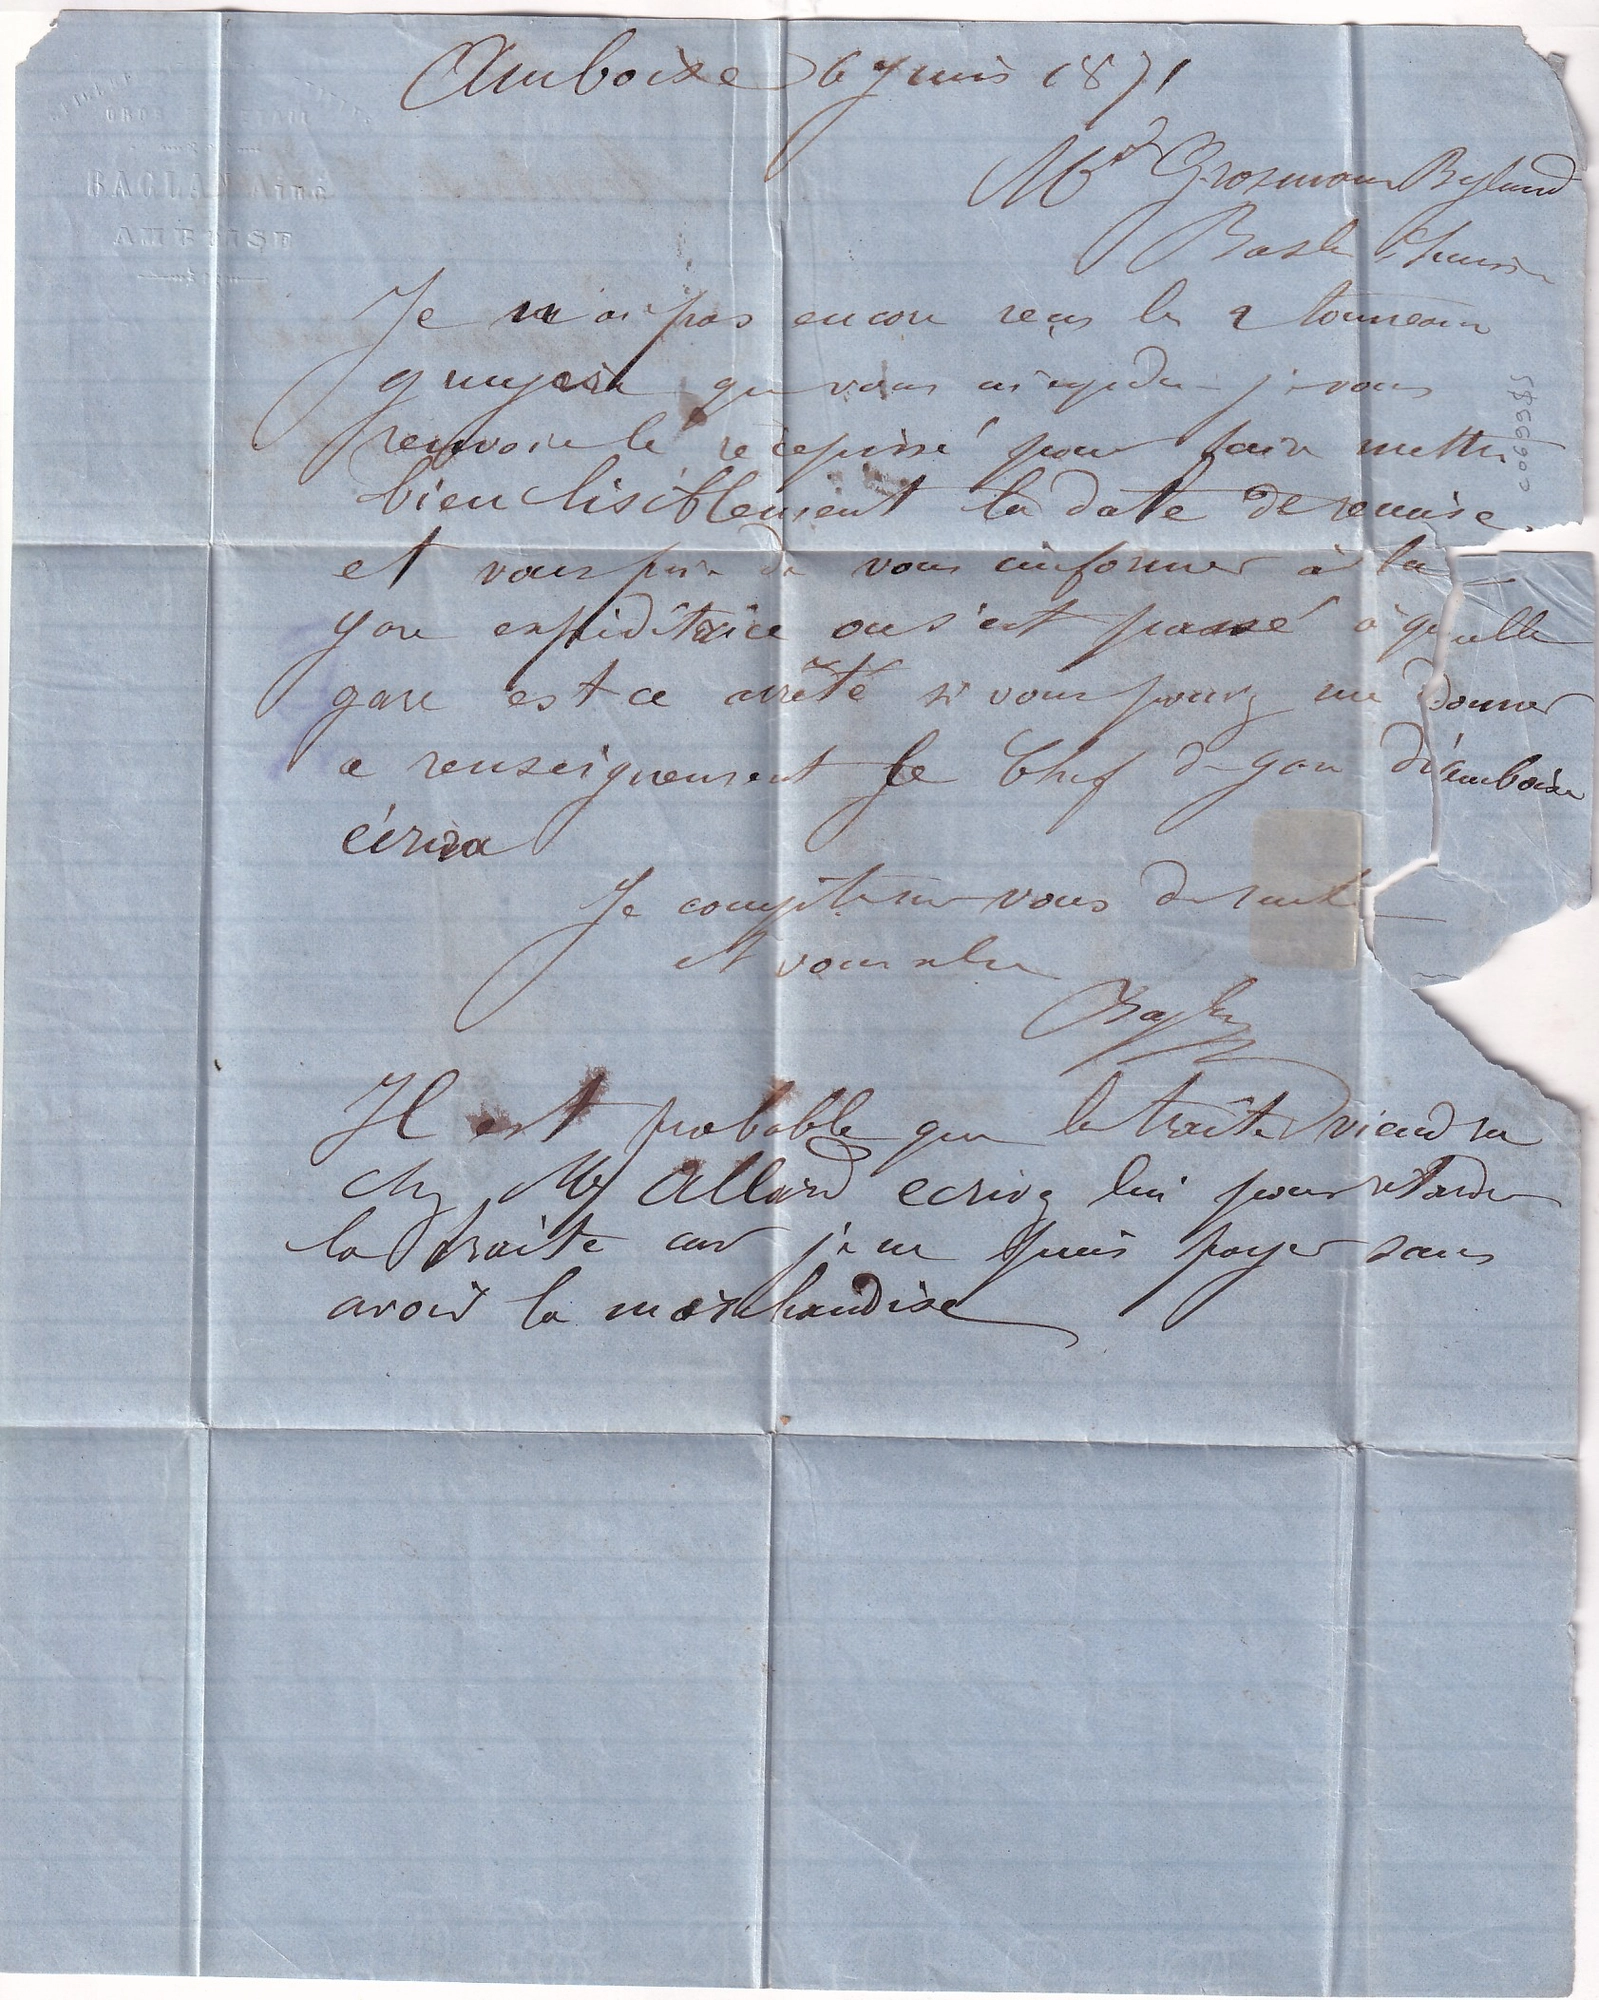 GROS DETAIL
BACLAN Ainé
AMBOISE
Amboise 6 Juin 1871
Mrs Grosmann Byland
Basle Suisse
Je n'ai pas encore reçus les 2 tonneaux
gruyère que vous ai expédié je vous
renvoie le récépissé pour faire mettre
bien lisiblement la date de remise.
et vous prie de vous informer à la
gare expéditrice ou s'est passé à quelle
gare est ce arrêté si vous pouvez me donner
ce renseignement le Chef de gare d'amboise
écrira
Je compte sur vous de suite
et vous salue
Il est probable que la traite viendra
chez Mr Allard ecrivez lui pour retarder
la traite car je ne puis payer sans
avoir la marchandise
C069985